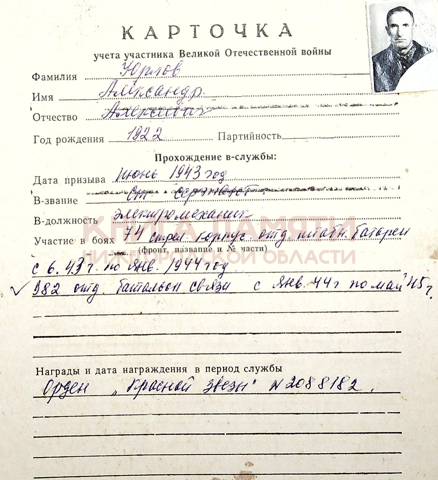 КАРТОЧКА
учета участника Великой Отечественной войны
Фамилия Юрлов
Имя Александр
Отчество Алексеевич
Год рождения 1922 Партийность
Прохождение в-службы:
Дата призыва Июнь 1943 год
В-звание ст сержант
В-должность электромеханик
КНИГА ПАМЯТИ
Участие в боях 74 стрел. корпус отд. штабн. батареи
(фронт, название и № части)
НИЖЕГОРОДСКОЙ ОБЛАСТИ
с 6.43 г. по янв. 1944 год
982 отд. батальон связи с янв. 44 г по май 45 г.
Награды и дата награждения в период службы
Орден „Красной Звезы" N 2088182.